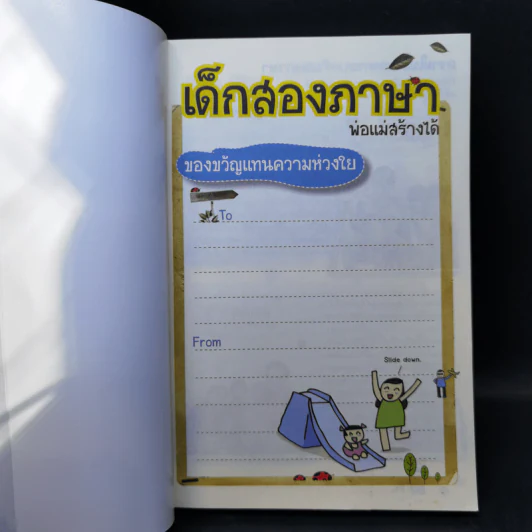 เด็กสองภาษา
พ่อแม่สร้างได้
ของขวัญแทนความห่วงใย
To
From
Slide down.